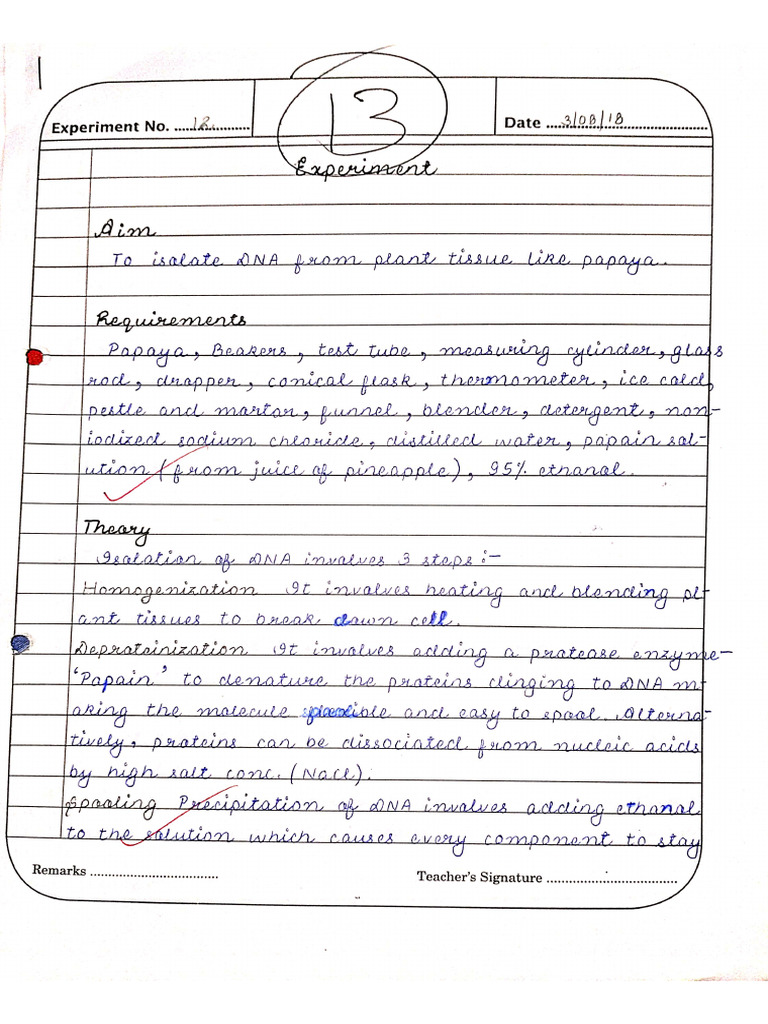 13
Experiment No. 12
Date 3/08/18
Experiment
Aim
To isolate DNA from plant tissue like papaya.
Requirements
Papaya, Beakers, test tube, measuring cylinder, glass
rod, dropper, conical flask, thermometer, ice cold,
pestle and mortar, funnel, blender, detergent, non-
iodized sodium chloride, distilled water, papain sol-
ution (from juice of pineapple), 95% ethanol.
Theory
Isolation of DNA involves 3 steps :-
Homogenization It involves heating and blending pl-
ant tissues to break down cell.
Deproteinization It involves adding a protease enzyme-
'Papain' to denature the proteins clinging to DNA m-
aking the molecule and easy to spool. Alterna-
tively, proteins can be dissociated from nucleic acids
by high salt conc. (NaCl).
Spooling Precipitation of DNA involves adding ethanol
to the solution which causes every component to stay
Remarks
Teacher's Signature